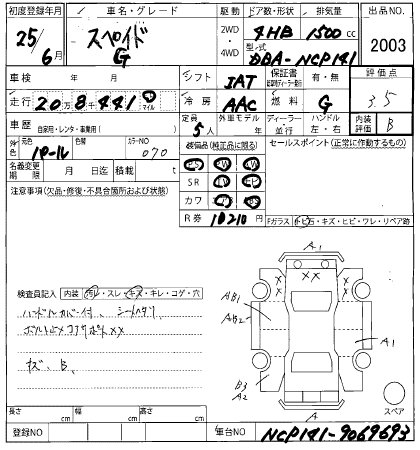 初度登録年月 車名・グレード 駆動 ドア数・形状 排気量 出品NO.
25年 6月 スペイド G 2WD・4WD 4HB 1500cc 2003
型式 DBA-NCP141
車検 年 月 シフト IAT 保証書 有・無 評価点
走行 20万8千441 km マイル 冷房 AAC 燃料 G 3.5
車歴 自家用・レンタ・事業用( ) 定員 5人 外車モデル 年 ディーラー・並行 ハンドル 左・右 内装評価 B
外色 元色 パール 色替 カラーNO 070 装備品(純正品に限る) セールスポイント(正常に作動するもの)
名義変更期限 月 日迄 積載 t PS PW
注意事項(欠品・修復・不具合箇所及び状態) SR
カワ
R券 10210 Fガラス 飛石・キズ・ヒビ・ワレ・リペア跡
A1
××
検査員記入 内装 汚レ・スレ・キズ・キレ・コゲ・穴
AB1
AB2
A1
ハンドルカバー付 シートヘタリ
キズ、B
B3
A2
A
スペア
長さ cm 幅 cm 高さ cm
登録NO 車台NO NCP141-9069693